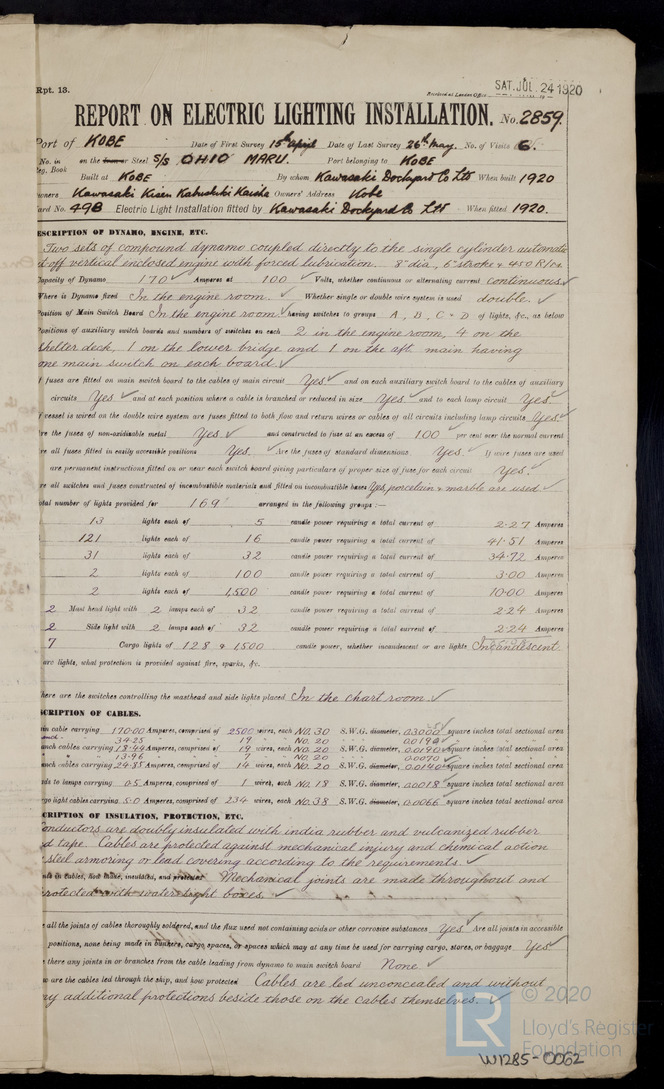 Rpt. 13.
Received at London Office SAT. JUL. 24 1920
REPORT ON ELECTRIC LIGHTING INSTALLATION. No. 2859.
Port of KOBE Date of First Survey 15th April Date of Last Survey 26th May. No. of Visits 6.
No. in on the Iron or Steel S/S OHIO MARU. Port belonging to KOBE
Reg. Book Built at KOBE By whom Kawasaki Dockyard Co Ltd When built 1920
Owners Kawasaki Kisen Kabushiki Kaisha Owners' Address Kobe
Yard No. 498 Electric Light Installation fitted by Kawasaki Dockyard Co Ltd When fitted 1920.
DESCRIPTION OF DYNAMO, ENGINE, ETC.
Two sets of compound dynamo coupled directly to the single cylinder automatic
cut off vertical enclosed engine with forced lubrication. 8" dia, 6" stroke & 450 R/m.
Capacity of Dynamo 170 ✓ Amperes at 100 ✓ Volts, whether continuous or alternating current continuous ✓
Where is Dynamo fixed In the engine room. ✓ Whether single or double wire system is used double. ✓
Position of Main Switch Board In the engine room ✓ having switches to groups A, B, C & D of lights, &c., as below
Positions of auxiliary switch boards and numbers of switches on each 2 in the engine room, 4 on the
shelter deck, 1 on the lower bridge and 1 on the aft. main having
one main switch on each board. ✓
If fuses are fitted on main switch board to the cables of main circuit Yes ✓ and on each auxiliary switch board to the cables of auxiliary
circuits Yes ✓ and at each position where a cable is branched or reduced in size Yes ✓ and to each lamp circuit Yes. ✓
If vessel is wired on the double wire system are fuses fitted to both flow and return wires or cables of all circuits including lamp circuits Yes ✓
Are the fuses of non-oxidizable metal Yes ✓ and constructed to fuse at an excess of 100 ✓ per cent over the normal current
Are all fuses fitted in easily accessible positions Yes. ✓ Are the fuses of standard dimensions Yes. ✓ If wire fuses are used
are permanent instructions fitted on or near each switch board giving particulars of proper size of fuse for each circuit Yes. ✓
Are all switches and fuses constructed of incombustible materials and fitted on incombustible bases Yes, porcelain & marble are used ✓
Total number of lights provided for 169 arranged in the following groups :—
13 lights each of 5 candle power requiring a total current of 2.27 Amperes
121 lights each of 16 candle power requiring a total current of 41.51 Amperes
31 lights each of 32 candle power requiring a total current of 34.72 Amperes
2 lights each of 100 candle power requiring a total current of 3.00 Amperes
2 lights each of 1,500 candle power requiring a total current of 10.00 Amperes
2 Mast head light with 2 lamps each of 32 candle power requiring a total current of 2.24 Amperes
2 Side light with 2 lamps each of 32 candle power requiring a total current of 2.24 Amperes
7 Cargo lights of 128 & 1500 candle power, whether incandescent or arc lights Incandescent.
If arc lights, what protection is provided against fire, sparks, &c.
Where are the switches controlling the masthead and side lights placed In the chart room. ✓
DESCRIPTION OF CABLES.
Main cable carrying 170.00 Amperes, comprised of 2500 wires, each No. 30 S.W.G. diameter, 0.3000 square inches total sectional area
34.25 19 No. 20 0.0190
Branch cables carrying 18.49 Amperes, comprised of 19 wires, each No. 20 S.W.G. diameter, 0.0190 square inches total sectional area
13.96 7 No. 20 0.0070
Branch cables carrying 24.85 Amperes, comprised of 14 wires, each No. 20 S.W.G. diameter, 0.0140 square inches total sectional area
Leads to lamps carrying 0.5 Amperes, comprised of 1 wires, each No. 18 S.W.G. diameter, 0.0018 square inches total sectional area
Cargo light cables carrying 5.0 Amperes, comprised of 234 wires, each No. 38 S.W.G. diameter, 0.0066 square inches total sectional area
DESCRIPTION OF INSULATION, PROTECTION, ETC.
Conductors are doubly insulated with india rubber and vulcanized rubber
and tape. Cables are protected against mechanical injury and chemical action
steel armoring or lead covering according to the requirements ✓
Joints in cables, how made, insulated, and protected Mechanical joints are made throughout and
protected with water tight boxes. ✓
Are all the joints of cables thoroughly soldered, and the flux used not containing acids or other corrosive substances Yes ✓ Are all joints in accessible
positions, none being made in bunkers, cargo spaces, or spaces which may at any time be used for carrying cargo, stores, or baggage Yes ✓
Are there any joints in or branches from the cable leading from dynamo to main switch board None ✓
How are the cables led through the ship, and how protected Cables are led unconcealed and without
any additional protections beside those on the cables themselves. ✓
© 2020
Lloyd's Register
Foundation
W1285-0062